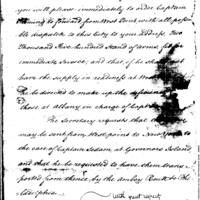 you will please immediately to order Captain
to forward from West Point with all possi
ble dispatch to this City to your address, Two
Thousand Five hundred Stand of arms, for
immediate Service; and that, if he should
have the supply in readiness at
he be directed to make up the
those at Albany in charge of Capt
The Secretary requests that
may be sent from West point to New York to
the care of Captain at Governors Island
and that he be requested to have them trans
ported from thence, by the Amboy Route to Phi
ladelphia.
With great respect